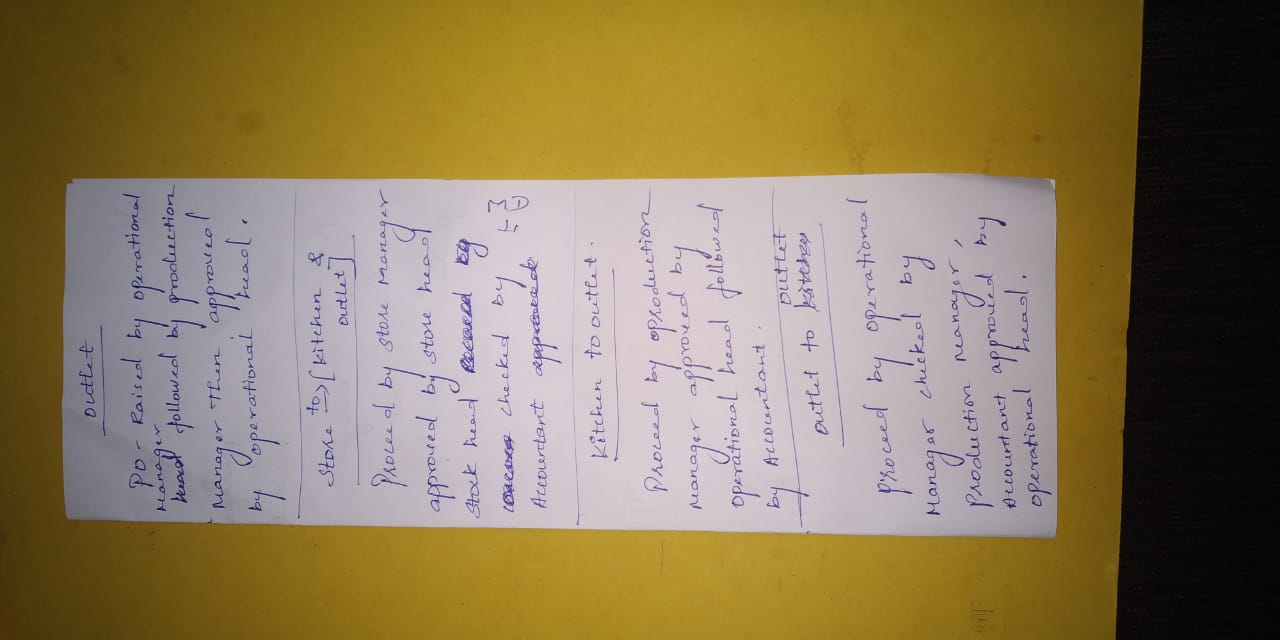 Outlet
PO - Raised by operational
Manager followed by production
Manager then approved
by operational head.
Store to → [kitchen &
outlet]
Proceed by store manager
approved by store head
Stock head
checked by
Accountant
Kitchen to outlet.
Proceed by oproduction
Manager approved by
operational head followed
by Accountant.
outlet
outlet to kitchen
Proceed by operational
Manager checked by
production manager,
Accountant approved by
operational head.